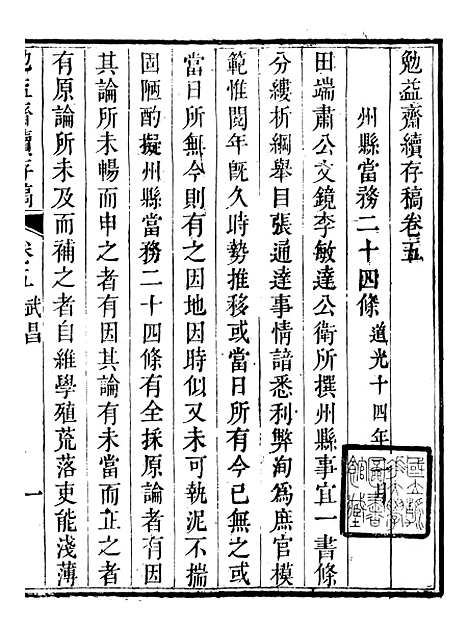 勉益齋續存稿卷五
州縣當務二十四條道光十四年
田端肅公文鏡李敏達公衛所撰州縣事宜一書條
分縷析綱舉目張通達事情諳悉利弊洵為庶官模
範惟閱年旣久時勢推移或當日所有今已無之或
當日所無今則有之因地因時似又未可執泥不揣
固陋酌擬州縣當務二十四條有全採原論者有因
其論所未暢而申之者有因其論有未當而正之者
有原論所未及而補之者自維學殖荒落吏能淺薄
勉益齋續存稿 卷五 武昌 一